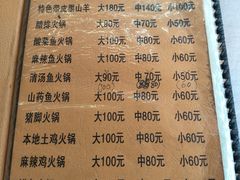 特色带皮黑山羊 大180元 中140元 小100元
腊排火锅 大80元 中70元 小50元
酸菜鱼火锅 大100元 中80元 小60元
麻辣鱼火锅 大100元 中80元 小60元
清汤鱼火锅 大90元 中70元 小50元
山药鱼火锅 大100元 中80元 小60元
猪脚火锅 大100元 中80元 小60元
本地土鸡火锅 大100元 中80元 小60元
麻辣鸡火锅 大100元 中80元 小60元